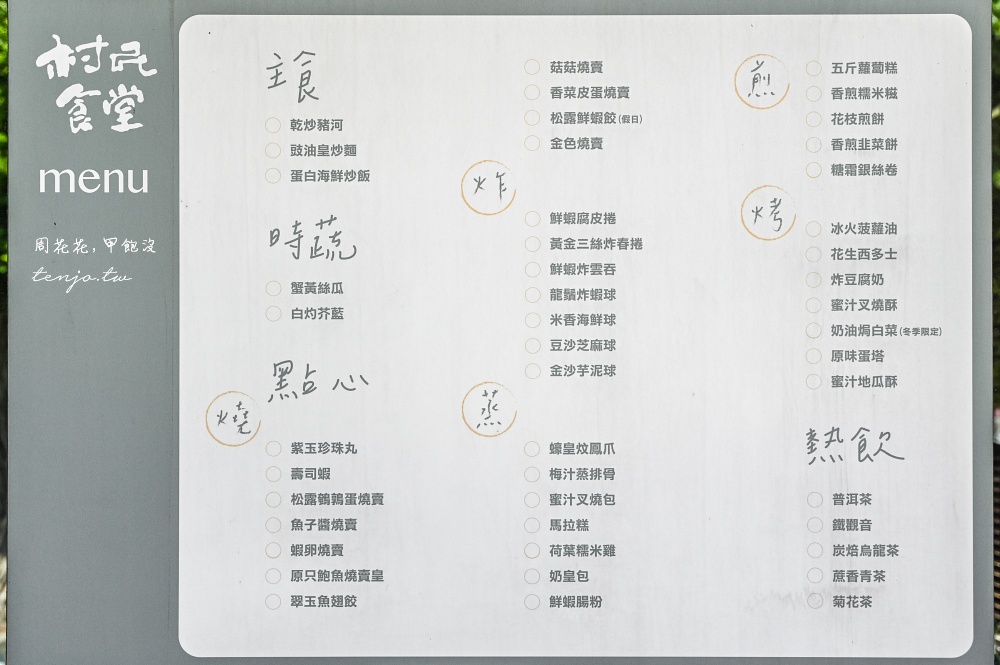 村民
食堂
menu
周花花，甲飽沒
tenjo.tw
主食
乾炒豬河
豉油皇炒麵
蛋白海鮮炒飯
時蔬
蟹黃絲瓜
白灼芥藍
點心
燒
紫玉珍珠丸
壽司蝦
松露鵪鶉蛋燒賣
魚子醬燒賣
蝦卵燒賣
原只鮑魚燒賣皇
翠玉魚翅餃
菇菇燒賣
香菜皮蛋燒賣
松露鮮蝦餃(假日)
金色燒賣
炸
鮮蝦腐皮捲
黃金三絲炸春捲
鮮蝦炸雲吞
龍鬚炸蝦球
米香海鮮球
豆沙芝麻球
金沙芋泥球
蒸
蠔皇炆鳳爪
梅汁蒸排骨
蜜汁叉燒包
馬拉糕
荷葉糯米雞
奶皇包
鮮蝦腸粉
煎
五斤蘿蔔糕
香煎糯米糍
花枝煎餅
香煎韭菜餅
糖霜銀絲卷
烤
冰火菠蘿油
花生西多士
炸豆腐奶
蜜汁叉燒酥
奶油焗白菜(冬季限定)
原味蛋塔
蜜汁地瓜酥
熱飲
普洱茶
鐵觀音
炭焙烏龍茶
蔗香青茶
菊花茶